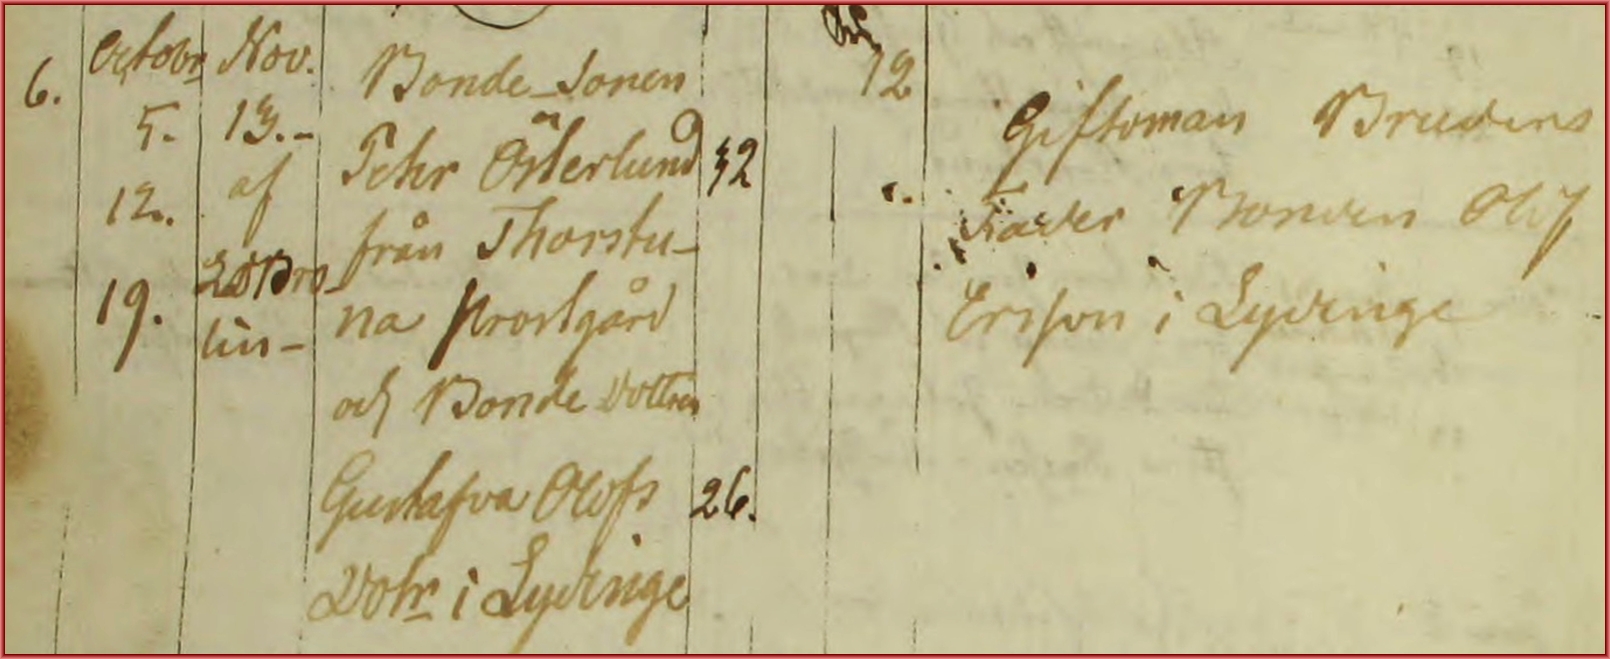 6.
Octobr
5.
12.
19.
Nov.
13.-
af
lin-
Bonde-Sonen
Pehr Österlund 32
från Thorstu-
na Prostgård
och Bonde Dottren
Gustafva Olofs 26.
Dotr i Lydinge
12
Giftoman Brudens
Fader Bonden Olof
Ersson i Lydinge